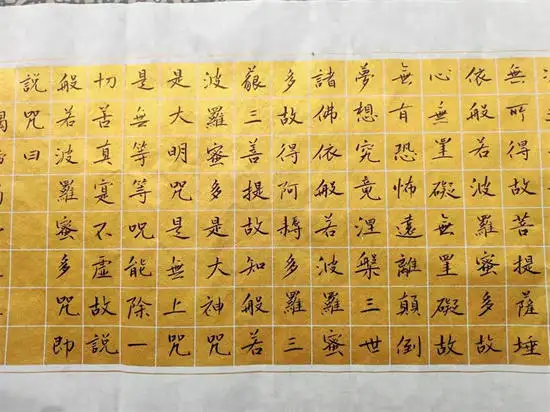 無所得故菩提薩埵
依般若波羅蜜多故
心無罣礙無罣礙故
無有恐怖遠離顛倒
夢想究竟涅槃三世
諸佛依般若波羅蜜
多故得阿耨多羅三
藐三菩提故知般若
波羅蜜多是大神咒
是大明咒是無上咒
是無等等咒能除一
切苦真實不虛故說
般若波羅蜜多咒即
說咒曰